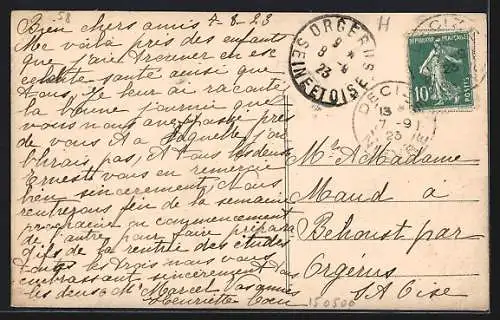 58
Bien chers amis 7-8-23
Me voilà près des enfants
que j'ai trouver en ex
celente santé ainsi que
tous, je leur ai raconté
la bonne journée que
vous nous avez passé près
de vous à laquelle j'ou
blirais pas, et à tous les deux
Ernest vous en remercie
bien sincèrement, nous
rentrerons fin de la semaine
prochaine ou commencement
de l'autre pour faire prépara
tifs de la rentrée des études
tous les trois nous vous
embrassant sincèrement tous
les deux. Marcel vos amies
Henriette
H
ORGERUS
8 -9
23
SEINE ET OISE
REPUBLIQUE FRANÇAISE
10c
POSTES
13
7 -9
23
Mr & Madame
Maud à
Behoust par
Orgérus
S. Oise
150500